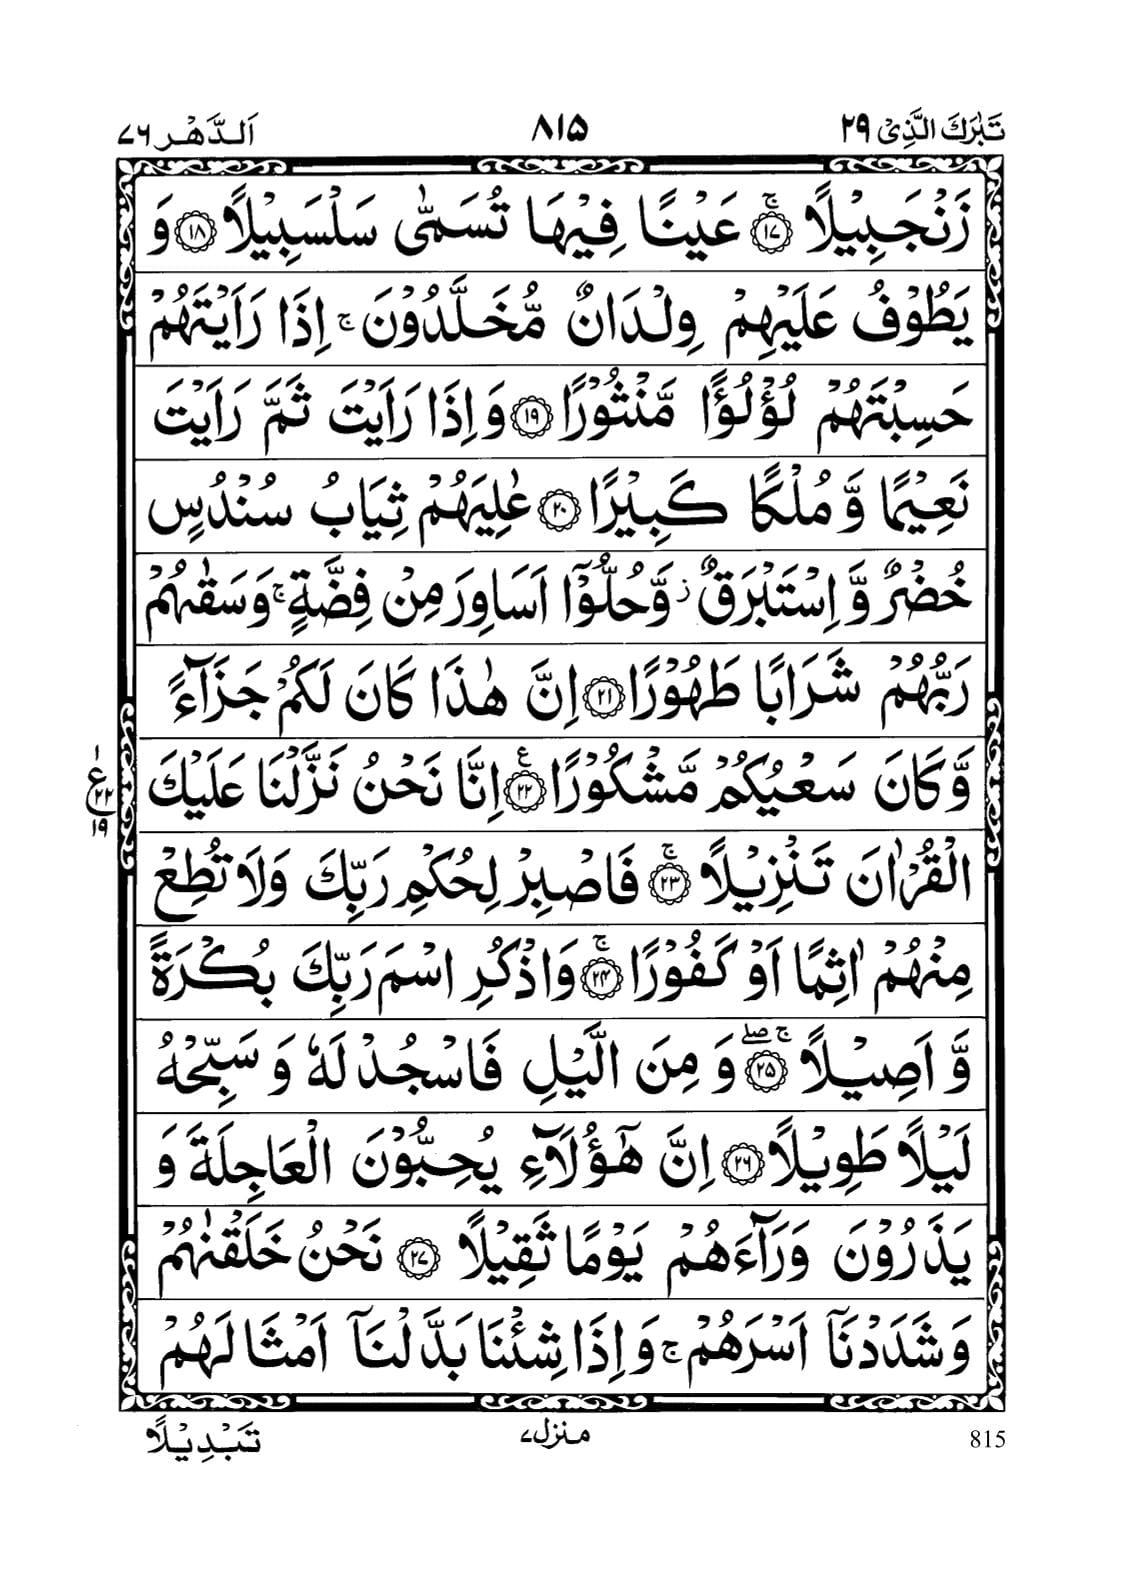 تَبٰرَكَ الَّذِیْ ۲۹
۸۱۵
اَلدَّهْر ۷۶
زَنْجَبِیْلًا ۚ﴿۱۷﴾ عَیْنًا فِیْهَا تُسَمّٰی سَلْسَبِیْلًا ﴿۱۸﴾ وَ
یَطُوْفُ عَلَیْهِمْ وِلْدَانٌ مُّخَلَّدُوْنَ ۚ اِذَا رَاَیْتَهُمْ
حَسِبْتَهُمْ لُؤْلُؤًا مَّنْثُوْرًا ﴿۱۹﴾ وَ اِذَا رَاَیْتَ ثَمَّ رَاَیْتَ
نَعِیْمًا وَّ مُلْكًا كَبِیْرًا ﴿۲۰﴾ عٰلِیَهُمْ ثِیَابُ سُنْدُسٍ
خُضْرٌ وَّ اِسْتَبْرَقٌ ؗ وَّ حُلُّوْۤا اَسَاوِرَ مِنْ فِضَّةٍ ۚ وَ سَقٰىهُمْ
رَبُّهُمْ شَرَابًا طَهُوْرًا ﴿۲۱﴾ اِنَّ هٰذَا كَانَ لَكُمْ جَزَآءً
وَّ كَانَ سَعْیُكُمْ مَّشْكُوْرًا ﴿۲۲﴾ ع اِنَّا نَحْنُ نَزَّلْنَا عَلَیْكَ
۱
ع ۲۲
۱۹
الْقُرْاٰنَ تَنْزِیْلًا ۚ﴿۲۳﴾ فَاصْبِرْ لِحُكْمِ رَبِّكَ وَ لَا تُطِعْ
مِنْهُمْ اٰثِمًا اَوْ كَفُوْرًا ۚ﴿۲۴﴾ وَ اذْكُرِ اسْمَ رَبِّكَ بُكْرَةً
وَّ اَصِیْلًا ۚۖ﴿۲۵﴾ وَ مِنَ الَّیْلِ فَاسْجُدْ لَهٗ وَ سَبِّحْهُ
لَیْلًا طَوِیْلًا ﴿۲۶﴾ اِنَّ هٰۤؤُلَآءِ یُحِبُّوْنَ الْعَاجِلَةَ وَ
یَذَرُوْنَ وَرَآءَهُمْ یَوْمًا ثَقِیْلًا ﴿۲۷﴾ نَحْنُ خَلَقْنٰهُمْ
وَ شَدَدْنَاۤ اَسْرَهُمْ ۚ وَ اِذَا شِئْنَا بَدَّلْنَاۤ اَمْثَالَهُمْ
تَبْدِیْلًا
منزل ۷
815